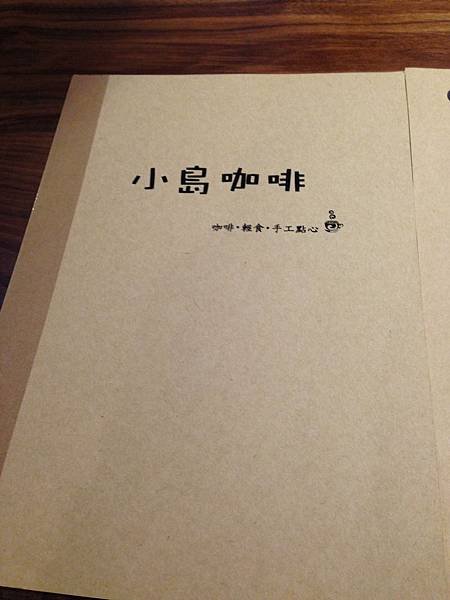 小島咖啡
咖啡·輕食·手工點心